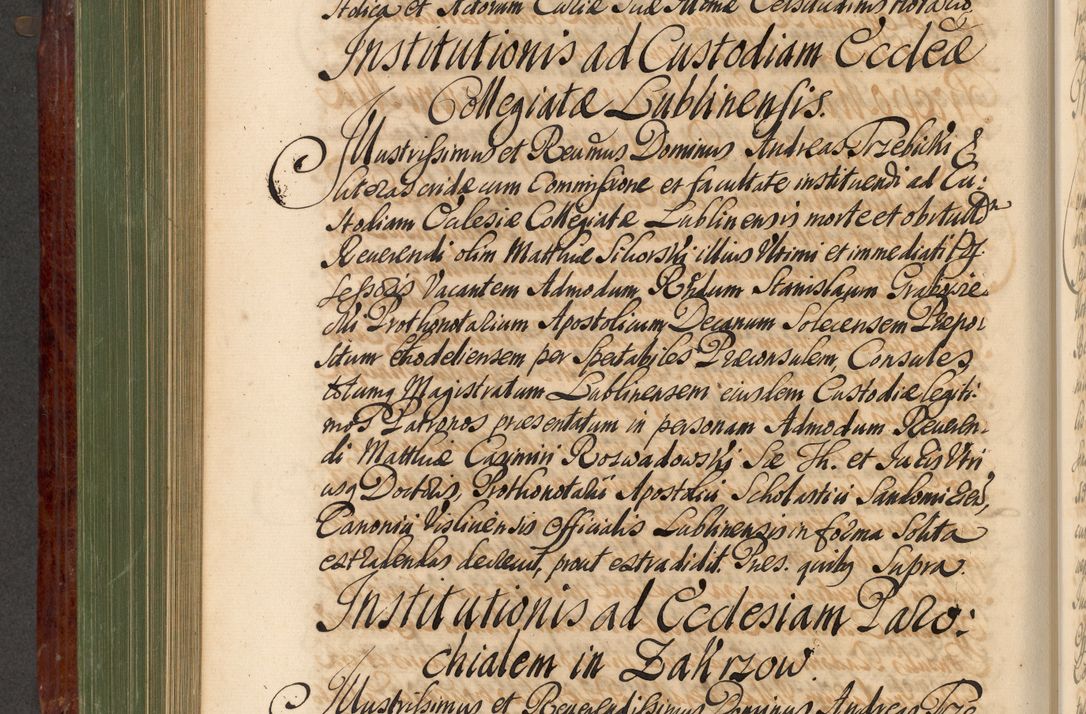 stolica et Actorum Curiæ Suæ Illmæ Celsitudinis Notario
Institutionis ad Custodiam Eccleæ
Collegiatæ Lublinensis.
Illustrissimus et Reuđmus Dominus Andreas Trzebicki &
literas eiđdæ cum Commissione et facultate instituendi ad Cu:
stodiam Ecclesiæ Collegiatæ Lublinensis morte et obitu
Reuerendi olim Matthiæ Silvorskÿ illius Vltimi et immediati Poſ
sessoris Vacantem Admodum Rñdum Stanislaum Grabowie
cki Prothonotarium Apostolicum Decanum Solecensem Præpo
situm Chodeliensem per Spectabiles Præconsulem, Consules,
totumq Magistratum Lublinensem eiusdem Custodiæ legiti:
mos Patronos præsentatum in personam Admodum Reueren:
di Matthiæ Casimiri Roswadowskÿ Sæ Th. et Juris Vtri
usq Doctoris, Prothonotarii Apostolici Scholastici Sandomirien,
Canonici Visliciensis Officialis Lublinensis in forma Solita
extradendas decreuit, prout extradidit. Præs. quibq Supra.
Institutionis ad Ecclesiam Paro:
chialem in Zakrzow.
Illustrissimus et Reuerendissimus Dominus Andreas Trze